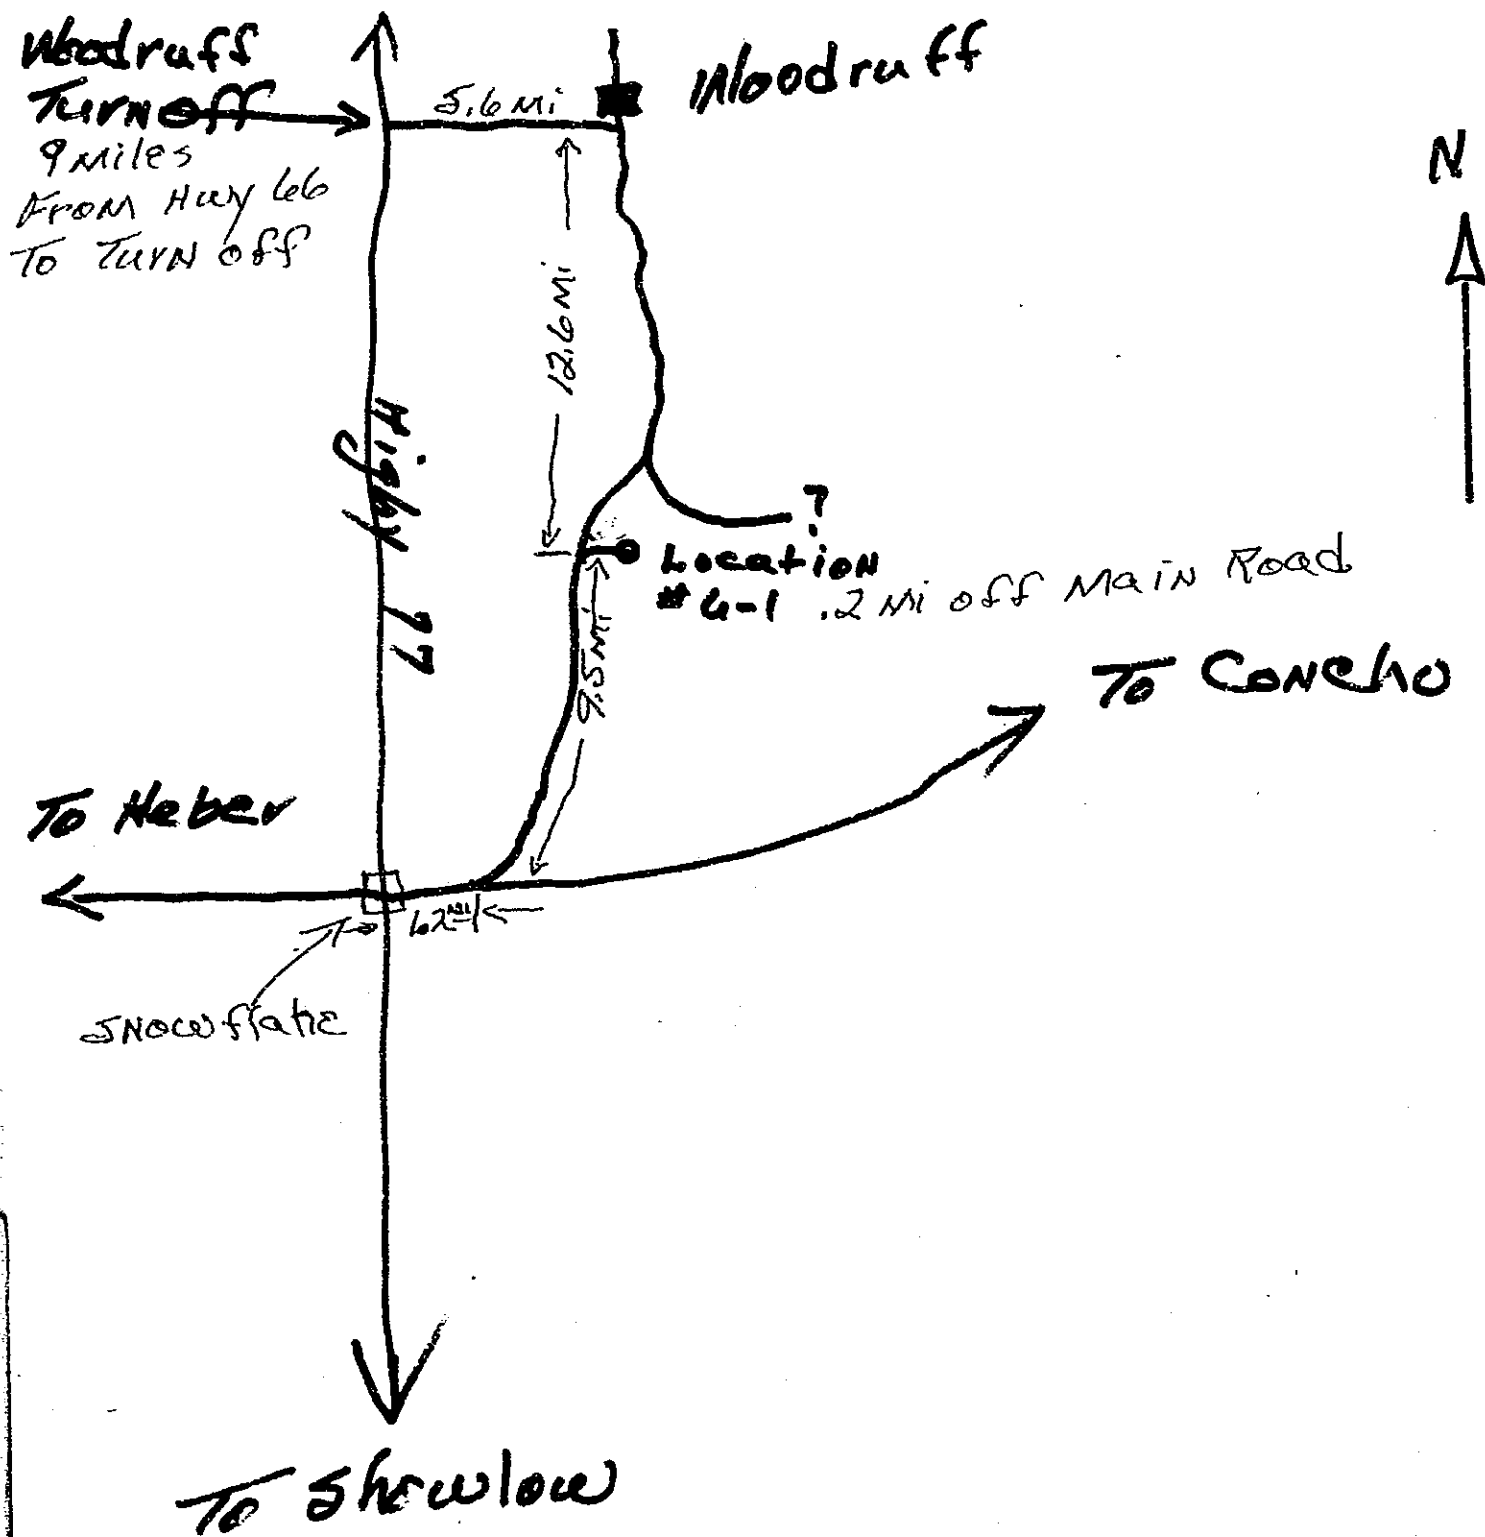 Woodruff
Turn off
9 Miles
From Hwy 66
To Turn off
5.6 Mi
Woodruff
N
12.6 Mi
Highy 77
?
Location
#6-1 .2 Mi off Main Road
9.5 Mi
To Concho
To Heber
Snowflake
To Showlow